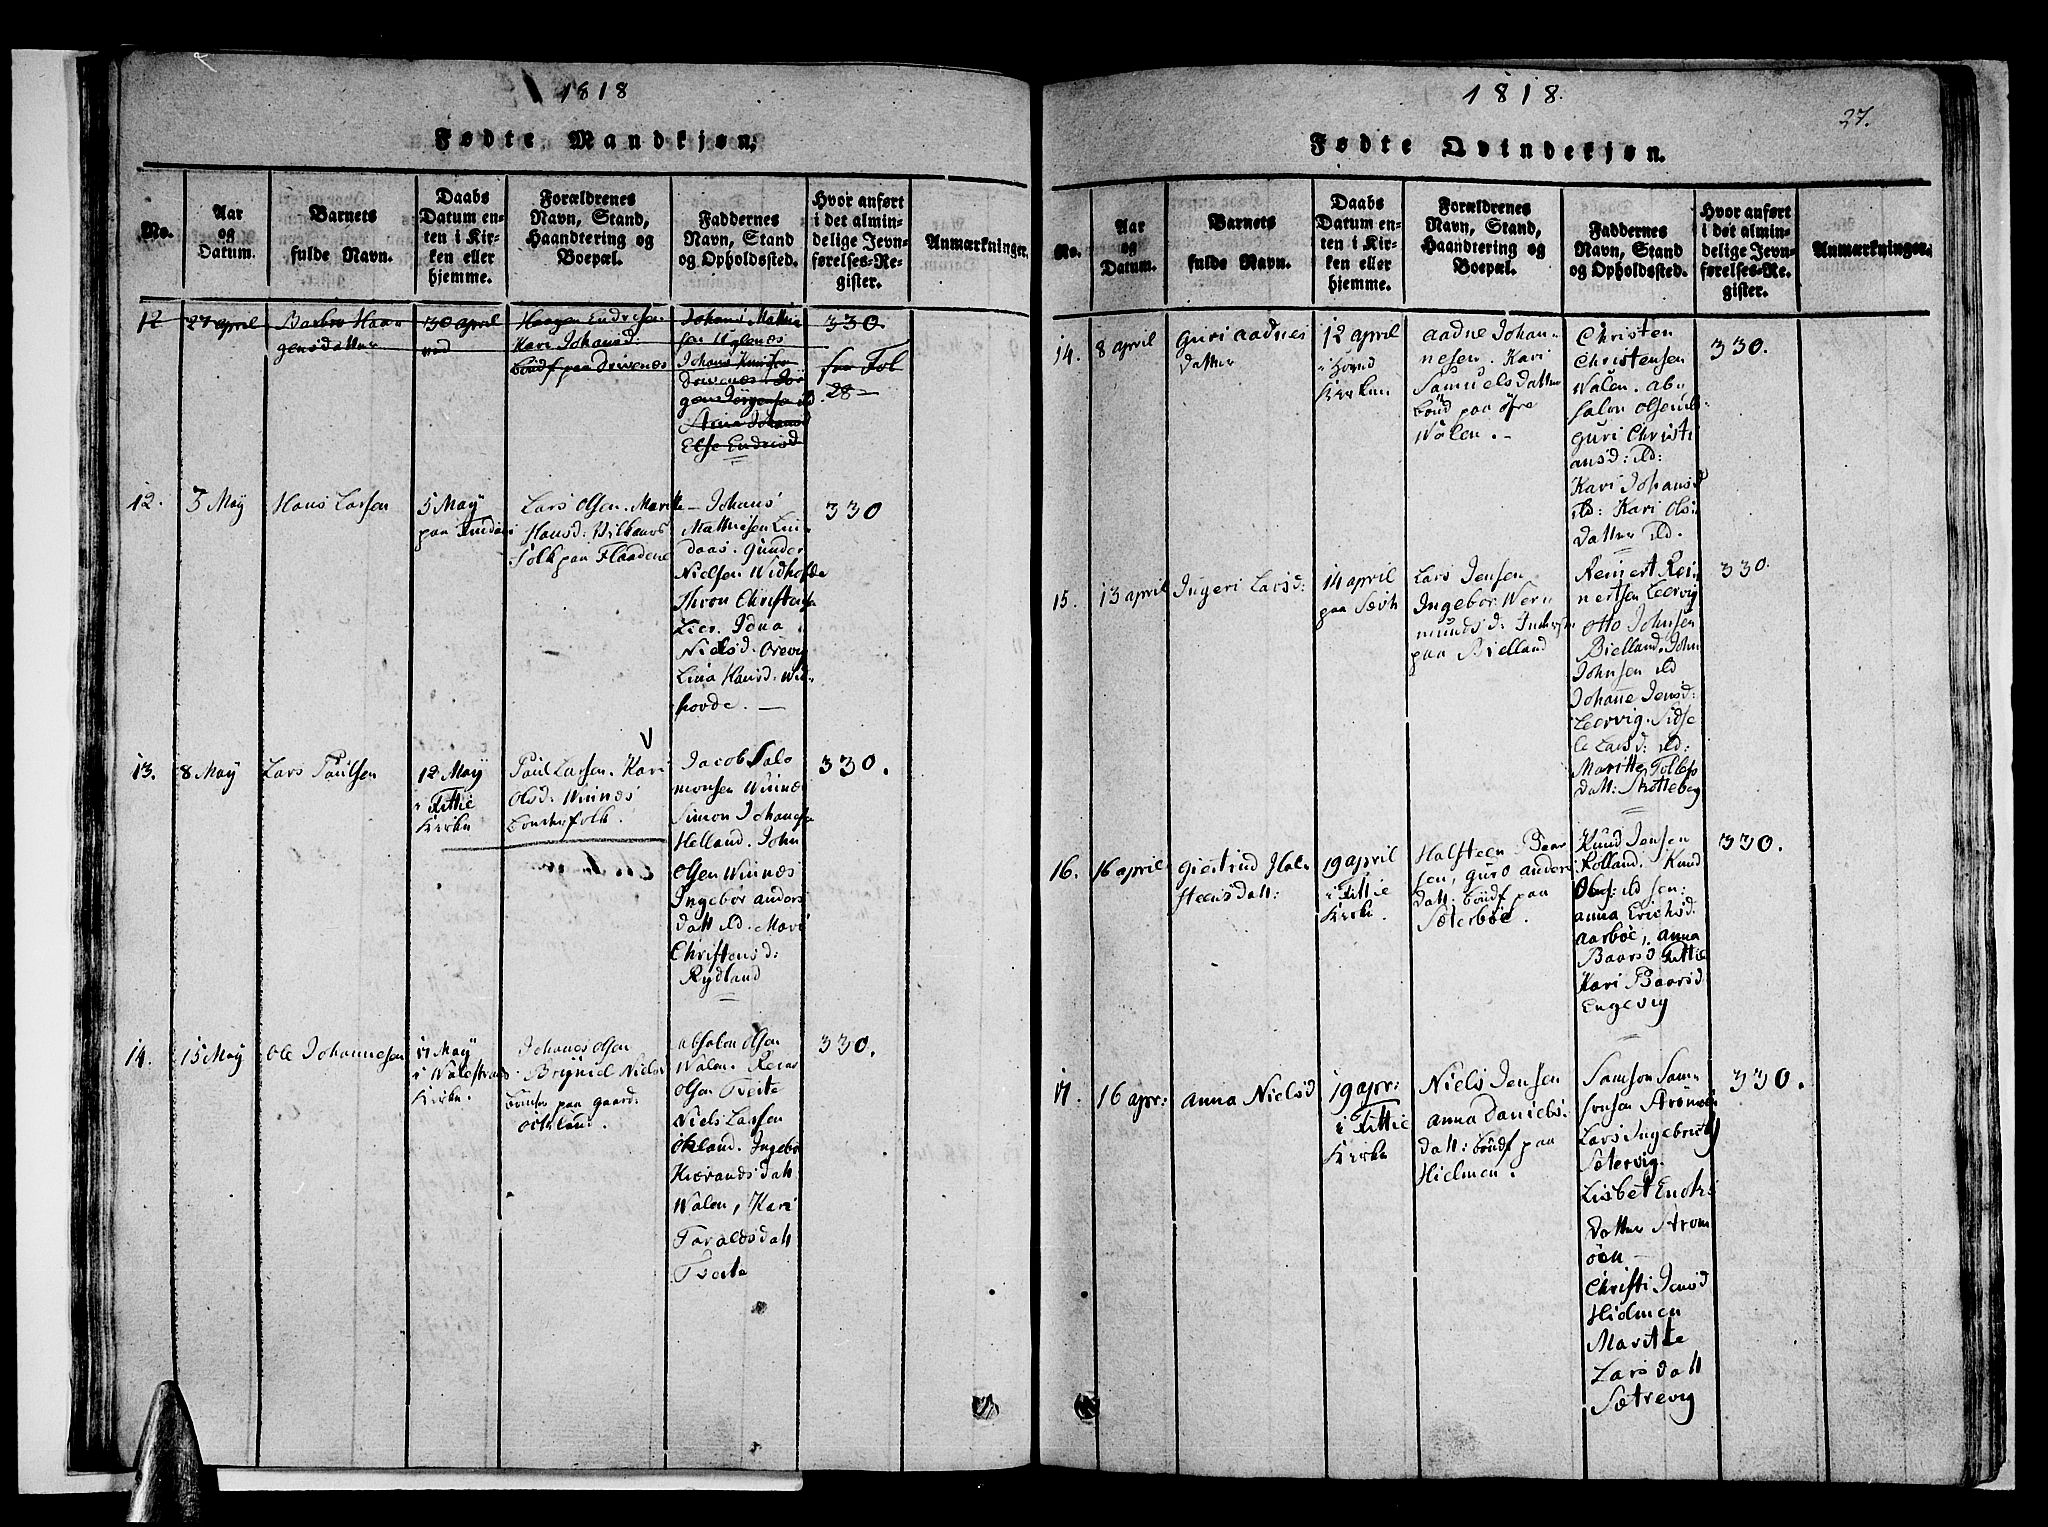 1818
Fødte Mandkjøn.
No.
Aar
og
Datum.
Barnets
fulde Navn.
Daabs
Datum en-
ten i Kir-
ken eller
hjemme.
Forældrenes
Navn, Stand,
Haandtering og
Boepæl.
Faddernes
Navn, Stand
og Opholdssted.
Hvor anført
i det almin-
delige Jevn-
førelses-Re-
gister.
Anmærkninger.
12
27 april
Barbro Haa-
gensdatter
30 april
Haagen Endresen
Kari Johansd:
bondf paa Drivenes
Johans Mathie
sen
Johans
Drivenes
Jörgensen ild
Anna Johansd
Else Endresd
330
Fol
28
12.
3 May
Hans Larsen
5 May
paa
Lars Olsen. Marite
Hansd:
folk paa Flaadene
Johans
Mathisen Lin
daas. Gunder
Nielsen Widhofde
Thron Christense
Lier.
Nielsd. Orevig
Lina Hansd. Wid-
hovde.
330
13.
8 May
Lars Paulsen
12 May
i Fittie
Kirke
Paul Larsen. Kari
Olsd: Winnes
bondefolk.
Jacob Salo
monsen Winnes
Simon Johanese
Helland. John
Olsen Winnes
Ingebor anders
datt ild. Mari
Christensd:
Rydland
330.
14.
15 May
Ole Johannesen
17 May
i Walestrand
Kirke.
Johanes Olsen
Niels
paa gaard:
absalon Olsen
Walen.
Olsen Tveite
Niels Larsen
Økland. Ingebor
datt
Walen, Kari
Taraldsdatt
Tveite
330.
1818.
27.
Fødte Qvindekjøn.
No.
Aar
og
Datum.
Barnets
fulde Navn.
Daabs
Datum en-
ten i Kir-
ken eller
hjemme.
Forældrenes
Navn, Stand,
Haandtering og
Boepæl.
Faddernes
Navn, Stand
og Opholdssted.
Hvor anført
i det almin-
delige Jevn-
førelses-Re-
gister.
Anmærkninger.
14.
8 april
Guri aadnes
datter
12 april
i
Kirken
aadne Johan-
nesen. Kari
Samuelsdatter
bönd paa öfre
Walen.
Christen
Christensen
Walen. ab-
salon Olsen ild:
Guri Christi
ansd: ild:
Kari Johansd
ild: Kari Ols-
datter ild.
330.
15.
13 april
Ingeri Larsd:
14 april
paa
Lars Jensen
Ingebor Wer
mundsd:
paa Bielland
Reinert Rei
nertsen Leervig
Otto Johnsen
Bielland. John
Johnsen ild
Johane Jensd:
Leervig. Sidse
le Larsd: ild:
Maritte Tollefs
datt: Skotteberg
330.
16.
16 april
Giertrud Hal-
steensdatt:
19 april
i Fittie
Kirke.
Halsteen Baar
sen, Guro anders
datt: böndf paa
Sæterböe.
Knud Jensen
Rolland. Knud
ild sen:
anna Erichsd.
aarböe, anna
Baarsd Fittie
Kari Baarsd
Engevig
330.
17.
16 apr:
anna Nielsd
19 apr:
i Fittie
Kirke
Niels Jensen
anna Daniels-
datt: böndf paa
Hielmen.
Samson Sam-
sonsen
Lars Ingebrigts
Sætervig.
Lisbet Endr:
datter Strøm
öen
Christi Jensd
Hielmen
Maritte
Larsdatt
Sætrevig
330.